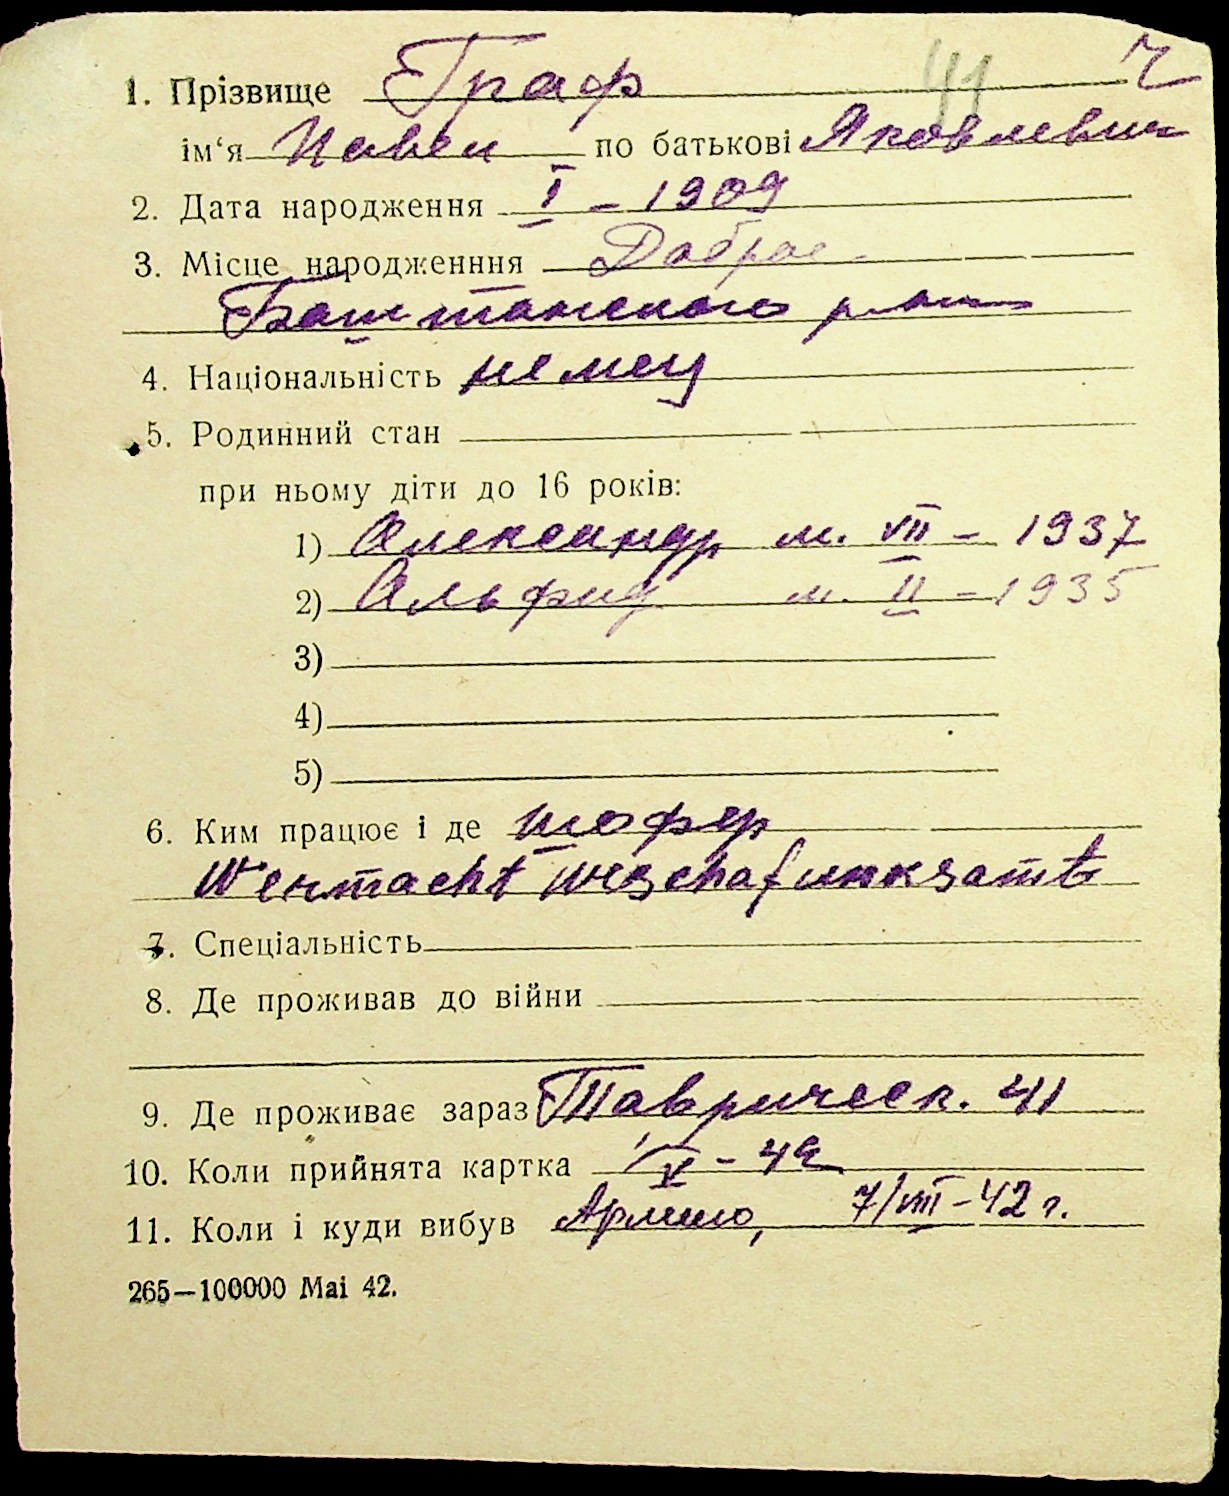 1. Прізвище Граф Ч
41
ім‘я Павел по батькові Яковлевич
2. Дата народження I – 1909
3. Місце народженння Доброе
Баштанского р-на
4. Національність немец
5. Родинний стан
при ньому діти до 16 років:
1) Александр м. VII – 1937
2) Альфид м. II – 1935
3)
4)
5)
6. Ким працює і де шофер
Wermacht
7. Спеціальність
8. Де проживав до війни
9. Де проживає зараз Таврическ. 41
10. Коли прийнята картка V – 42
11. Коли і куди вибув Армию, 7/VIII – 42 г.
265—100000 Mai 42.